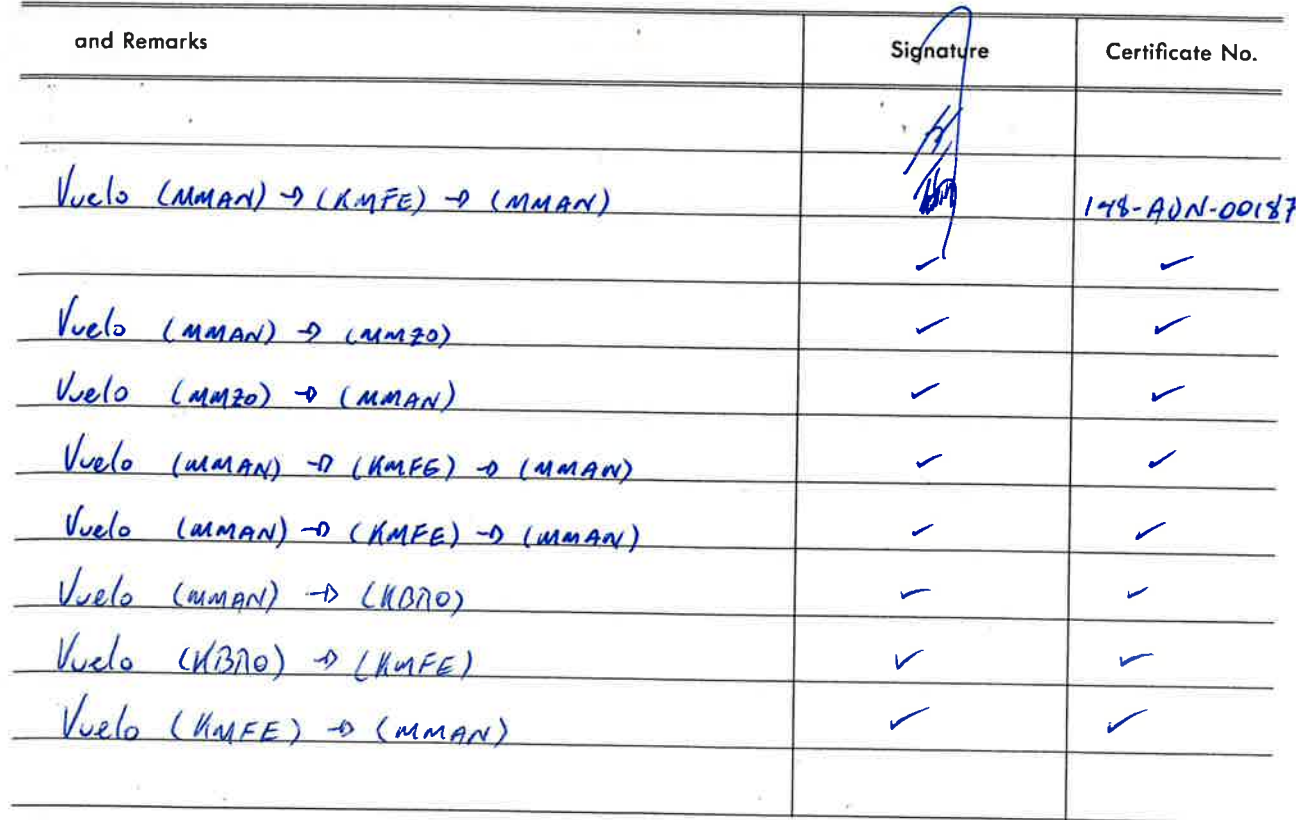 and Remarks Signature Certificate No.
Vuelo (MMAN) → (KMFE) → (MMAN) 148-ADN-00187
✓ ✓
Vuelo (MMAN) → (MMZO) ✓ ✓
Vuelo (MMZO) → (MMAN) ✓ ✓
Vuelo (MMAN) → (KMFE) → (MMAN) ✓ ✓
Vuelo (MMAN) → (KMFE) → (MMAN) ✓ ✓
Vuelo (MMAN) → (KBRO) ✓ ✓
Vuelo (KBRO) → (KMFE) ✓ ✓
Vuelo (KMFE) → (MMAN) ✓ ✓